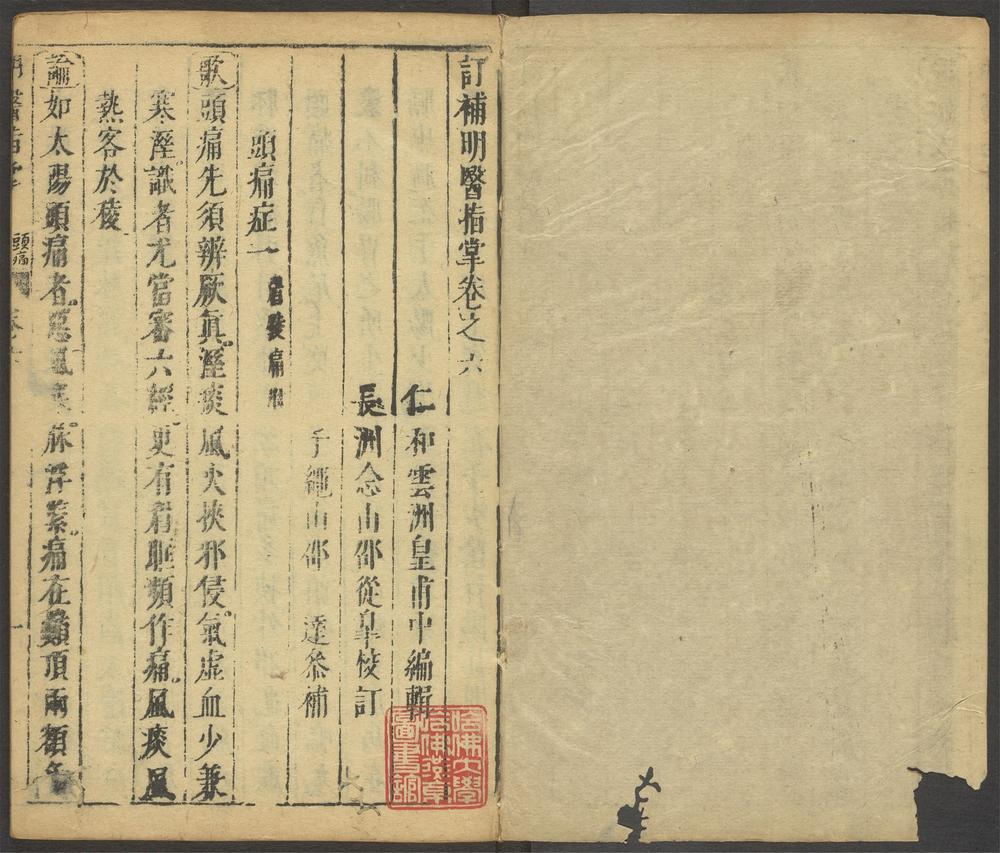 訂補明醫指掌卷之六
仁和雲洲皇甫中編輯
長洲念山邵從皐校訂
子繩山邵達叅補
頭痛症一 眉稜痛附
歌 頭痛先須辨厥眞溼痰風火挾邪侵氣虛血少兼
寒溼識者尤當審六經更有眉眶頻作痛風痰風
熱客於稜
論 如太陽頭痛者惡風寒脉浮緊痛在巔頂兩額
頭痛
哈佛大學哈佛燕京圖書館